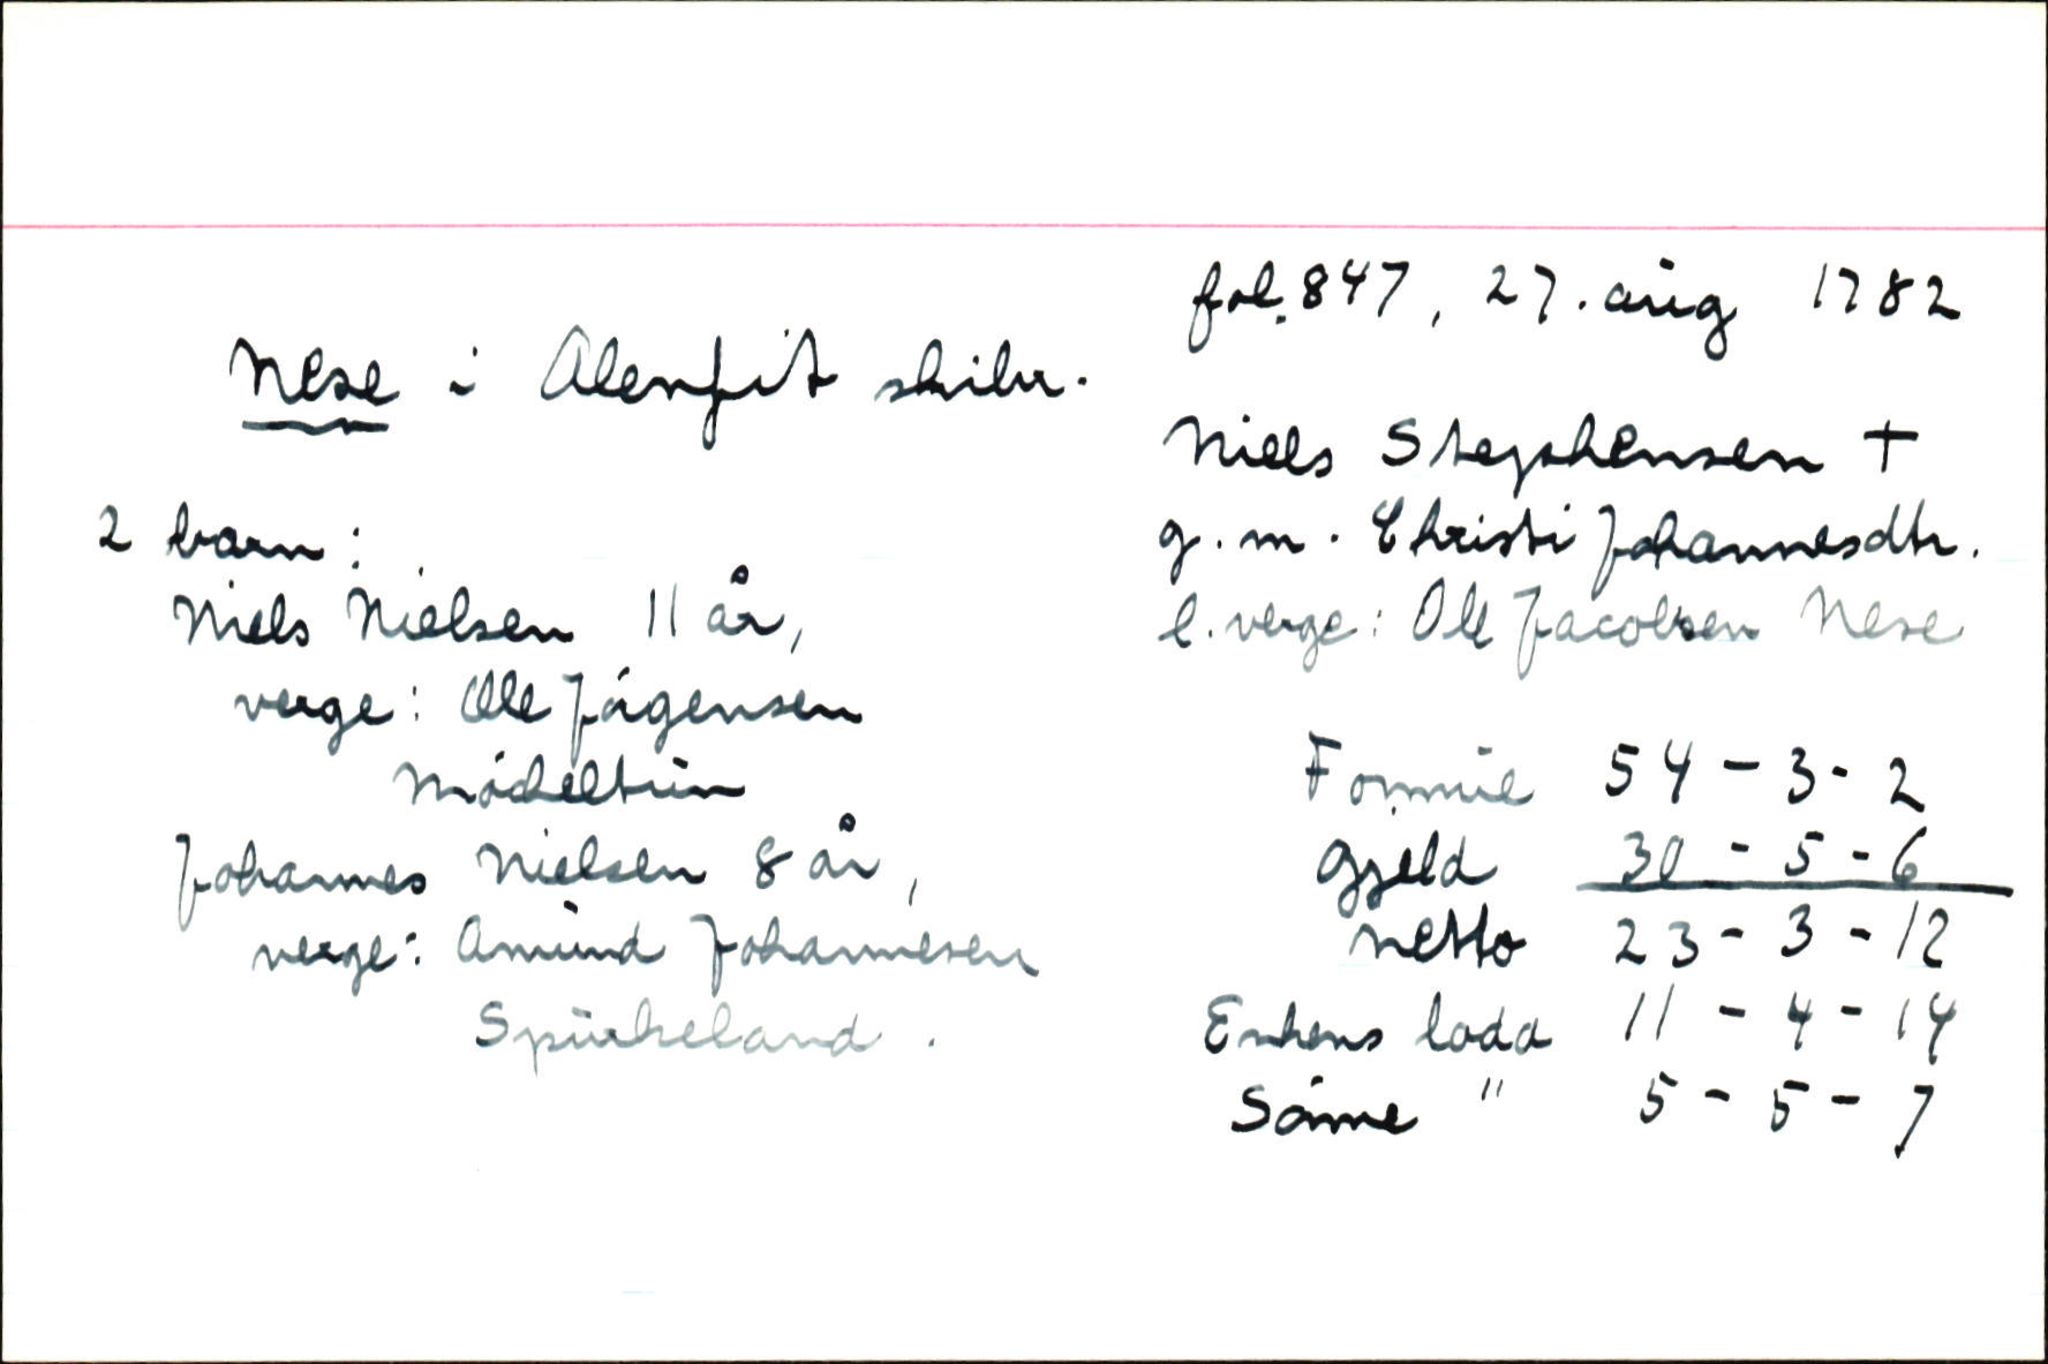 fol. 847, 27. aug 1782
Nese i Alenfit skibr.
Niels Stephensen +
g. m. Christi Johannesdtr.
l. verge: Ole Jacobsen Nese
2 barn:
Niels Nielsen 11 år,
verge: Ole Jörgensen
Mödheltun
Johannes Nielsen 8 år,
verge: Amund Johannesen
Spurkeland.
Formue 54 - 3 - 2
Gjeld 30 - 5 - 6
netto 23 - 3 - 12
Enkens lodd 11 - 4 - 14
Sönne " 5 - 5 - 7